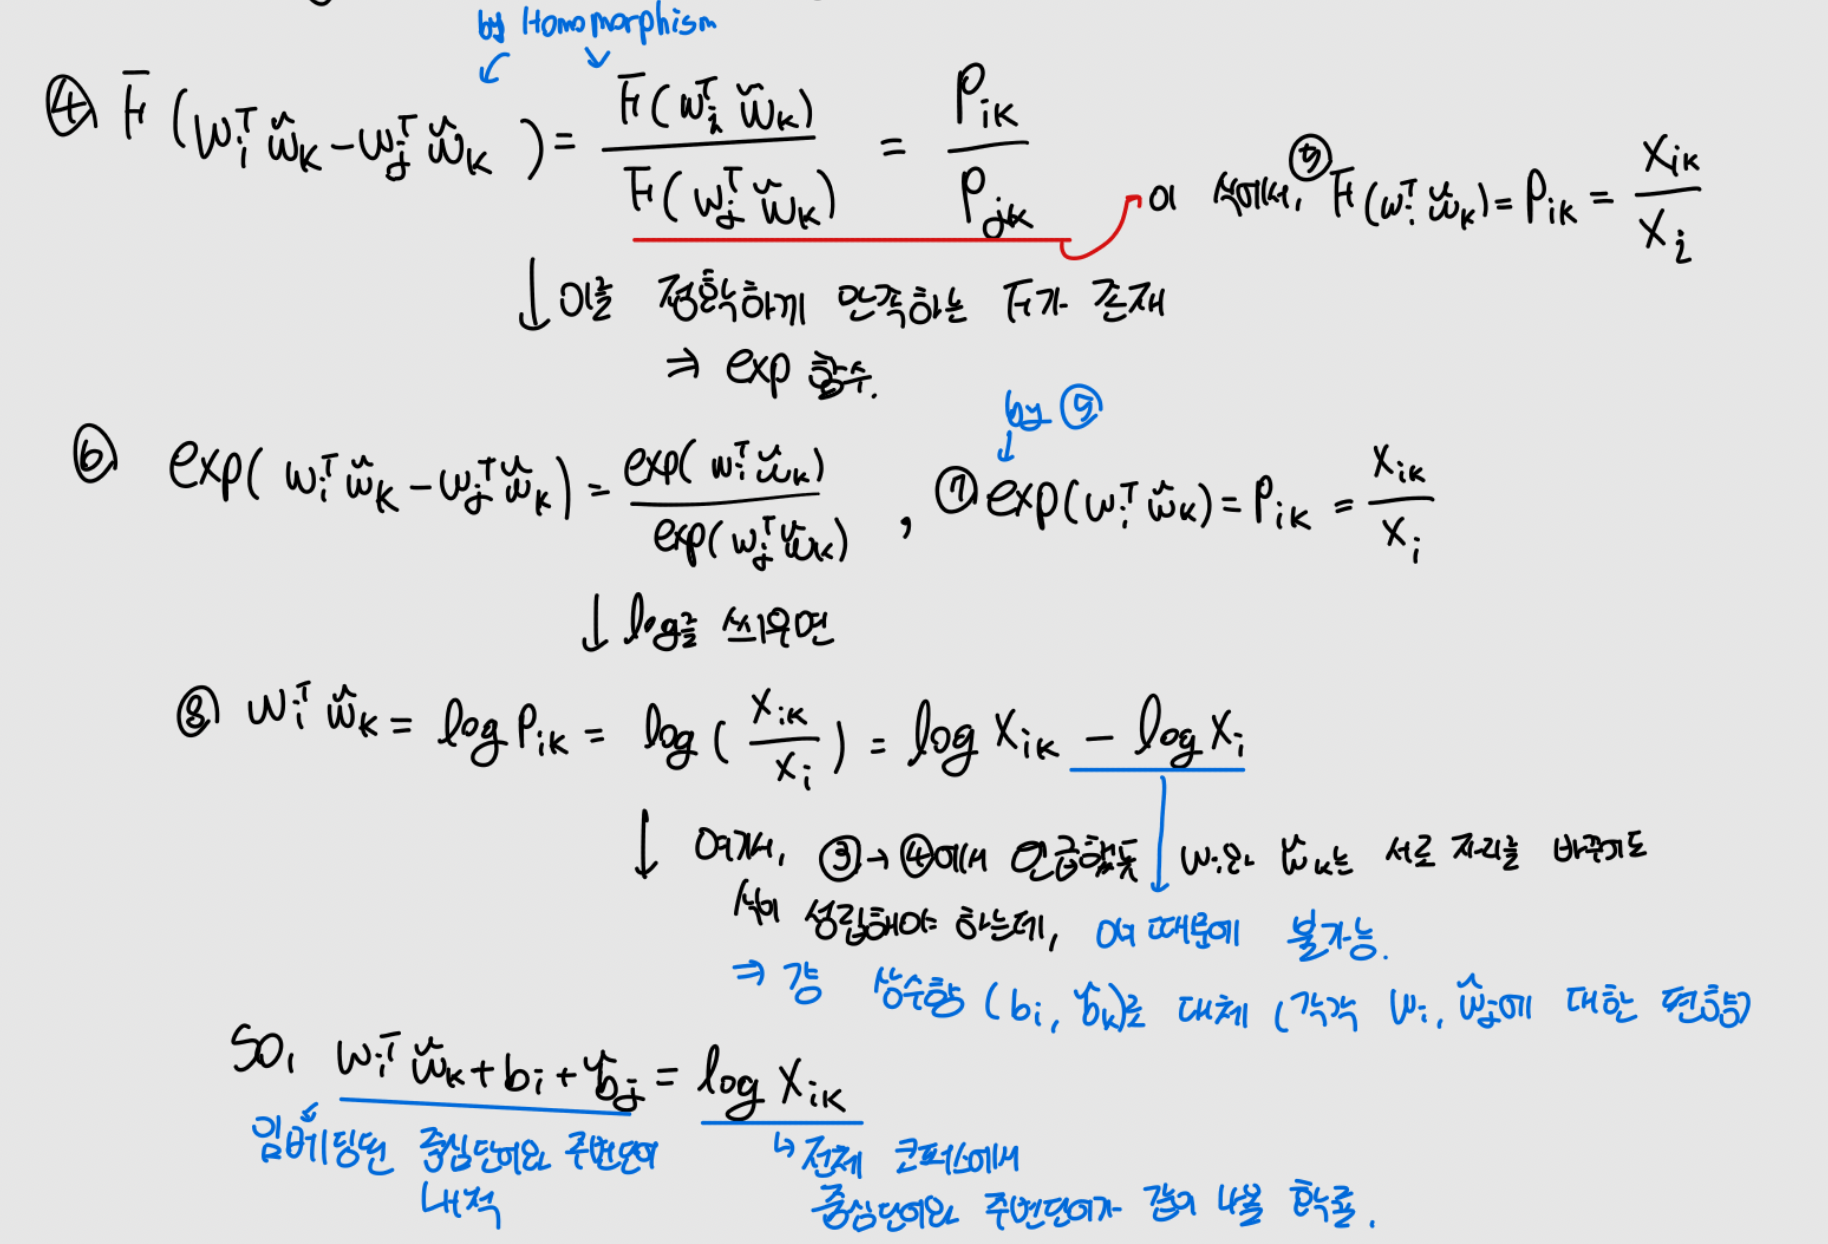 by Homomorphism
④ F(wᵢᵀ w̃ₖ - wⱼᵀ w̃ₖ) = F(wᵢᵀ w̃ₖ) / F(wⱼᵀ w̃ₖ) = Pᵢₖ / Pⱼₖ
이 식에서, ⑤ F(wᵢᵀ w̃ₖ) = Pᵢₖ = Xᵢₖ / Xᵢ
↓ 이를 정확하게 만족하는 F가 존재
⇒ exp 함수.
by ⑤
⑥ exp(wᵢᵀ w̃ₖ - wⱼᵀ w̃ₖ) = exp(wᵢᵀ w̃ₖ) / exp(wⱼᵀ w̃ₖ) , ⑦ exp(wᵢᵀ w̃ₖ) = Pᵢₖ = Xᵢₖ / Xᵢ
↓ log를 씌우면
⑧ wᵢᵀ w̃ₖ = log Pᵢₖ = log(Xᵢₖ / Xᵢ) = log Xᵢₖ - log Xᵢ
↓ 여기서, ③→④에서 언급했듯 wᵢ와 w̃ₖ는 서로 자리를 바꾸어도
식이 성립해야 하는데, 여 때문에 불가능.
⇒ 걍 상수항 (bᵢ, b̃ₖ)로 대체 (각각 wᵢ, w̃ⱼ에 대한 편향)
So, wᵢᵀ w̃ₖ + bᵢ + b̃ⱼ = log Xᵢₖ
임베딩된 중심단어와 주변단어
내적
↳ 전체 코퍼스에서
중심단어와 주변단어가 같이 나올 확률.